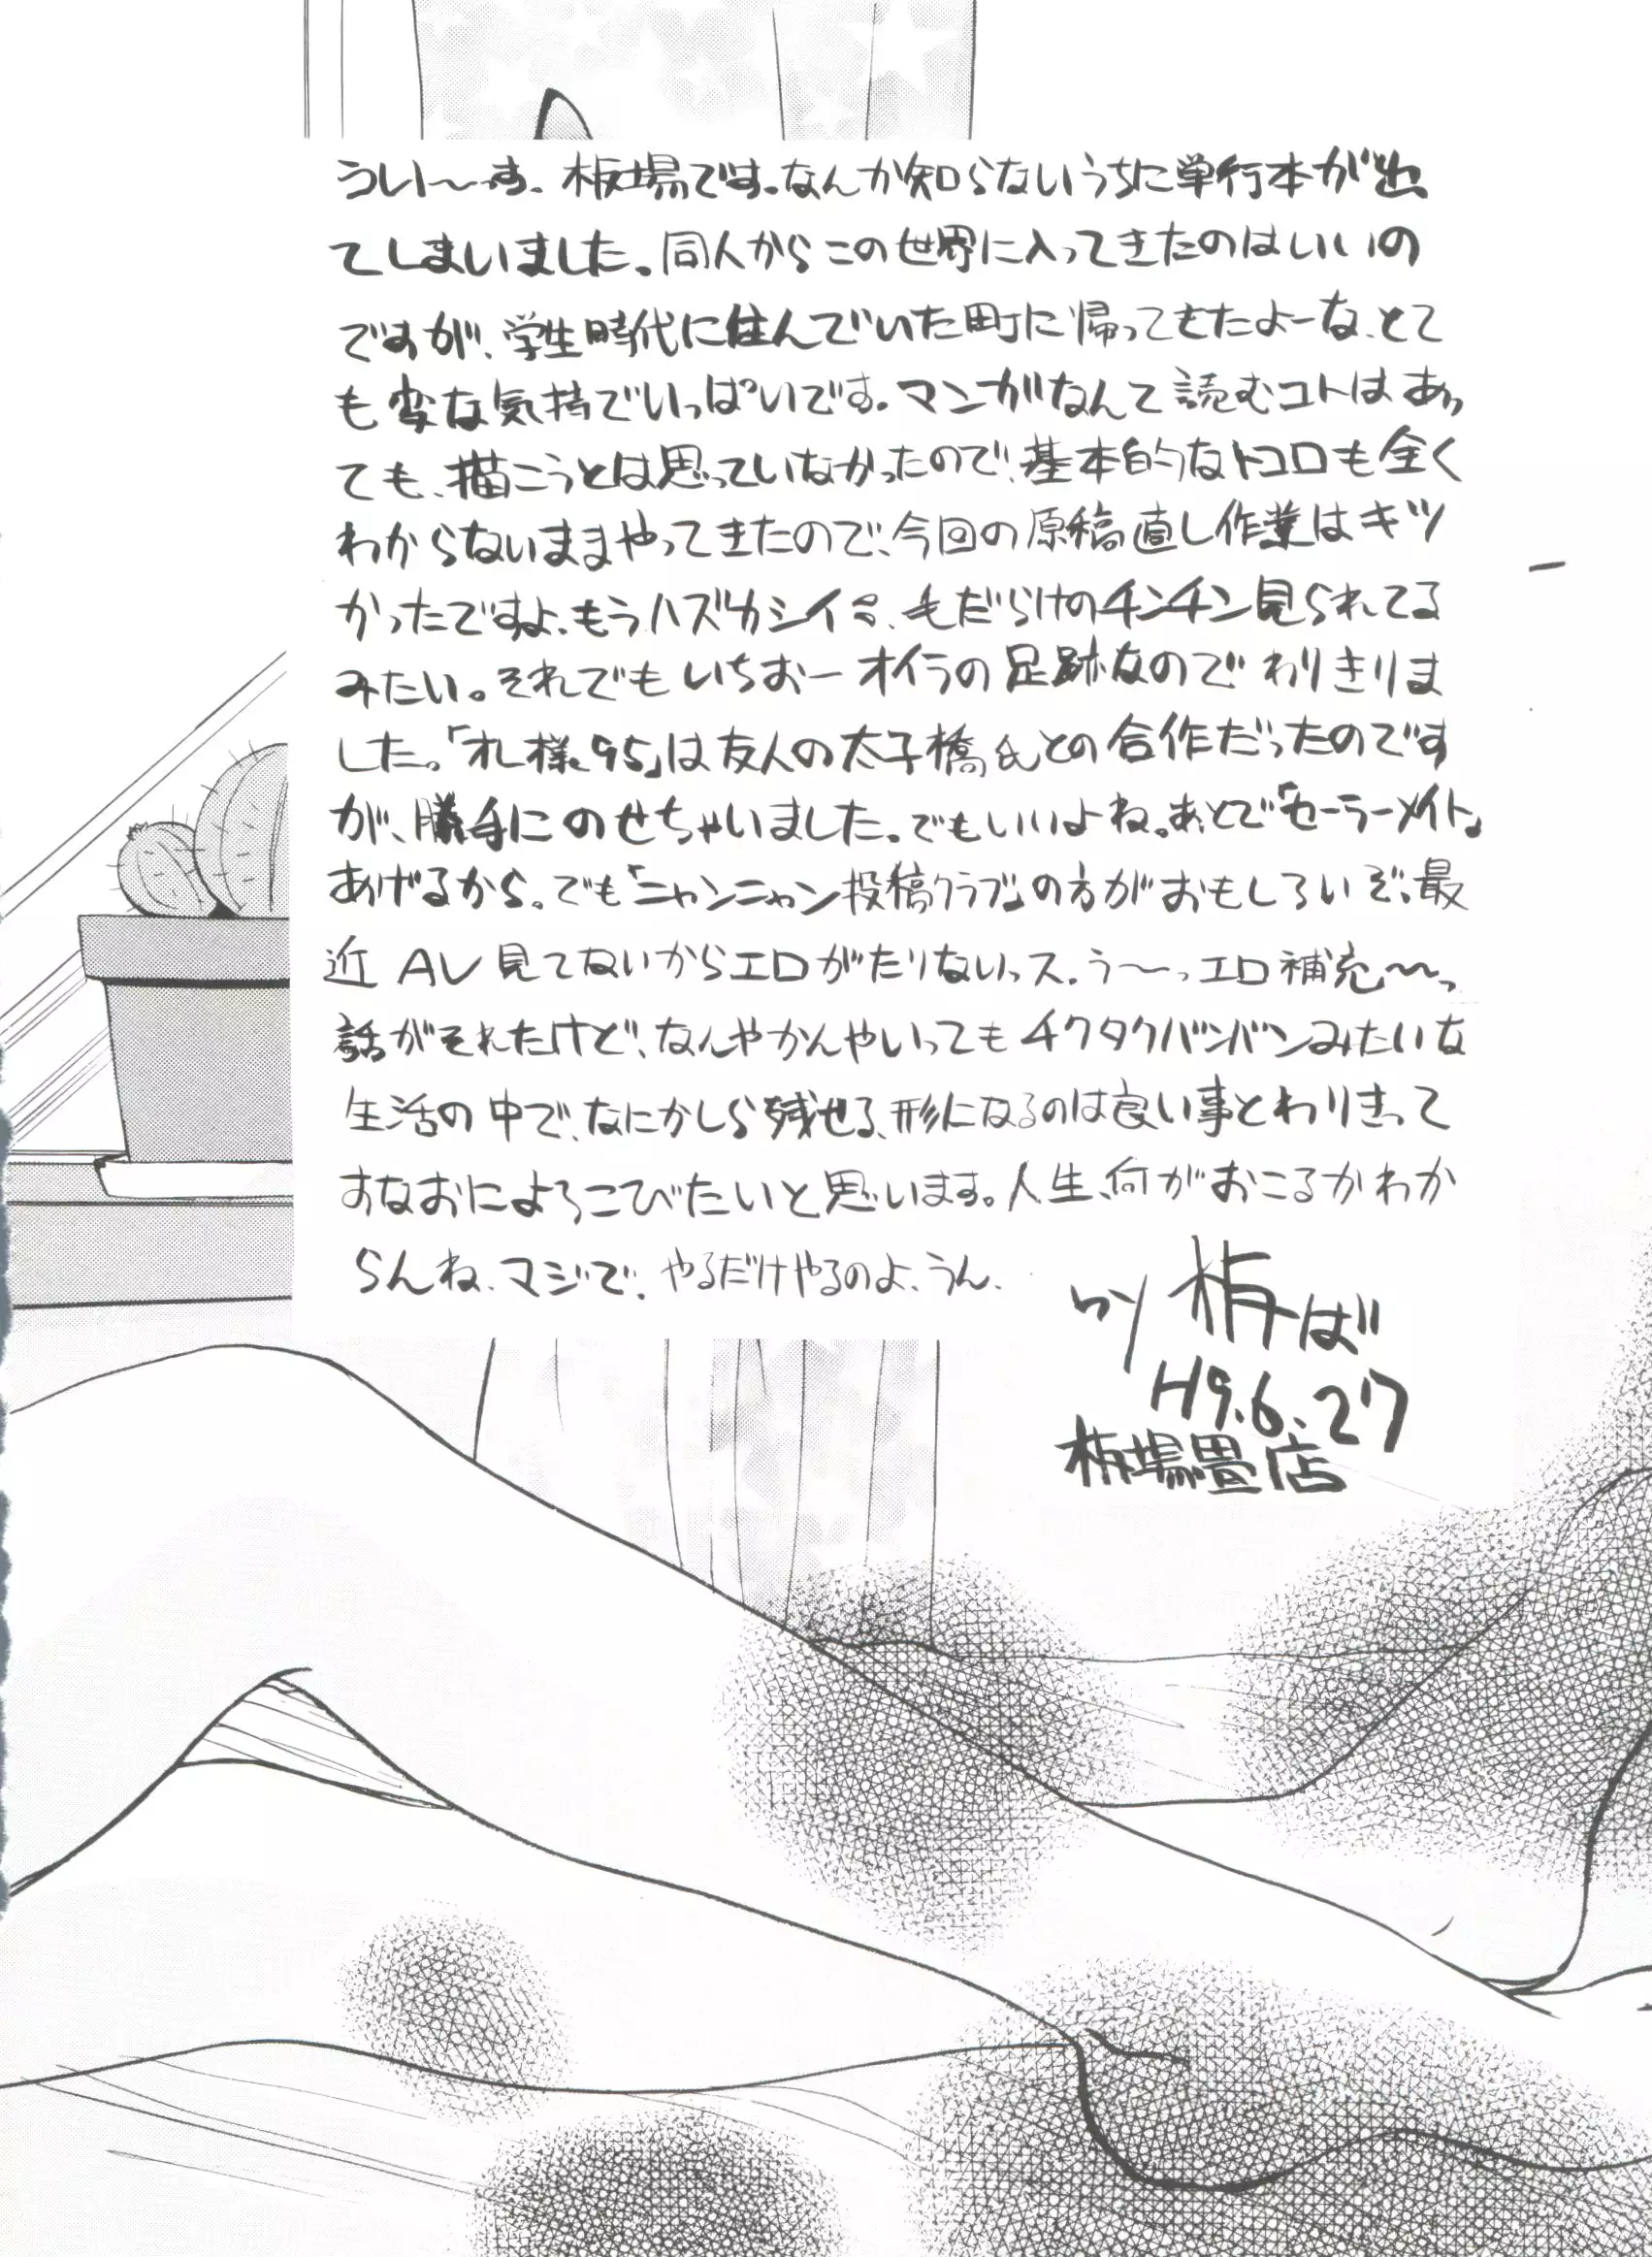 ういーす。板場です。なんか知らないうちに単行本が出
てしまいました。同人からこの世界に入ってきたのはいいの
ですが、学生時代に住んでいた町に帰ってきたよーな、とて
も変な気持でいっぱいです。マンガなんて読むコトはあっ
ても、描こうとは思っていなかったので、基本的なトコロも全く
わからないままやってきたので、今回の原稿直し作業はキツ
かったですよ、もうハズカシイ、毛だらけのチンチン見られてる
みたい。それでもいちおーオイラの足跡なのでわりきりま
した。「オレ様95」は友人の太子橋氏との合作だったのです
が、勝手にのせちゃいました。でもいいよね。あとで「セーラーメイト」
あげるから。でも「ニャンニャン投稿クラブ」の方がおもしろいぞ、最
近AV見てないからエロがたりないっス。う〜っエロ補充〜〜っ
話がそれたけど、なんやかんやいってもチクタクバンバンみたいな
生活の中で、なにかしら残せる、形になるのは良い事とわりきって
すなおによろこびたいと思います。人生、何がおこるかわか
らんね、マジで。やるだけやるのよ、うん。
by 板ば
H9.6.27
板場畳店